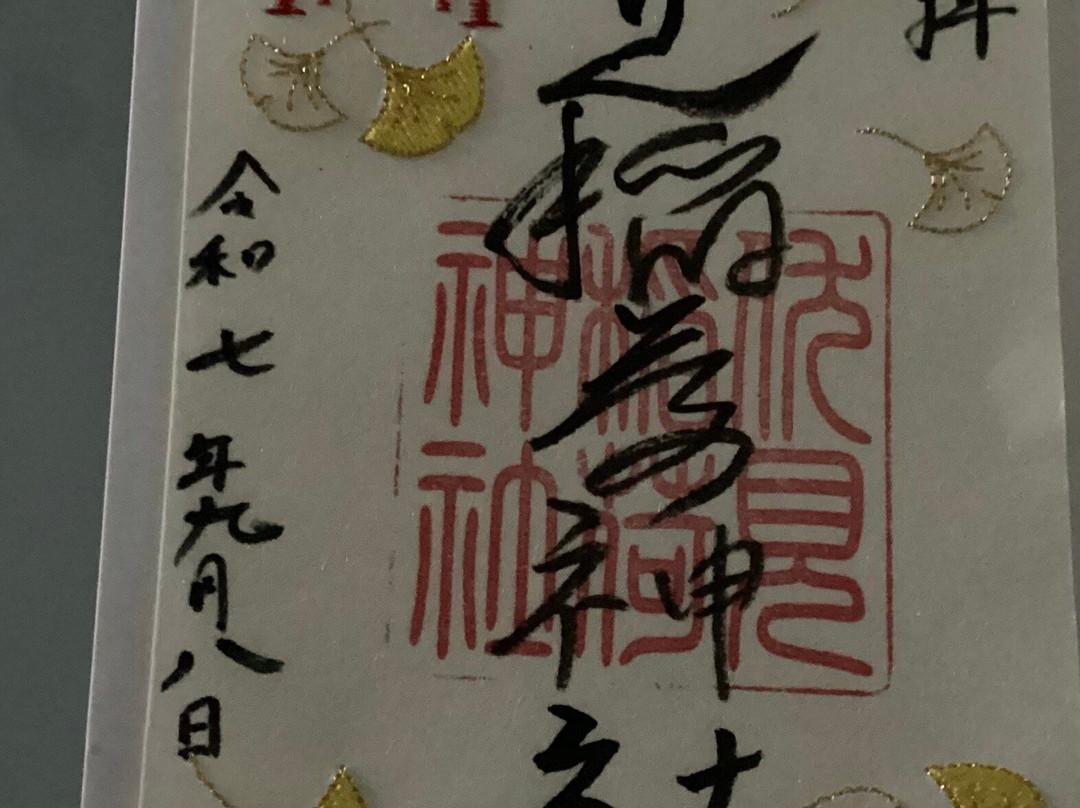 拝
見稲荷神社
伏見
稲荷
神社
令和七年九月八日